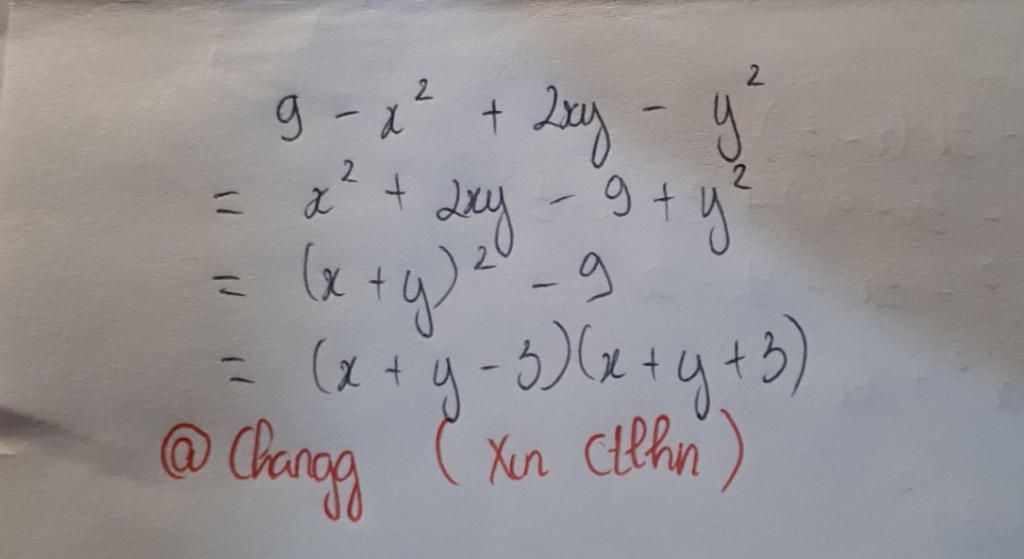 9 - x² + 2xy - y²
= x² + 2xy - 9 + y²
= (x + y)² - 9
= (x + y - 3)(x + y + 3)
@ Changg ( Xin ctlhn )